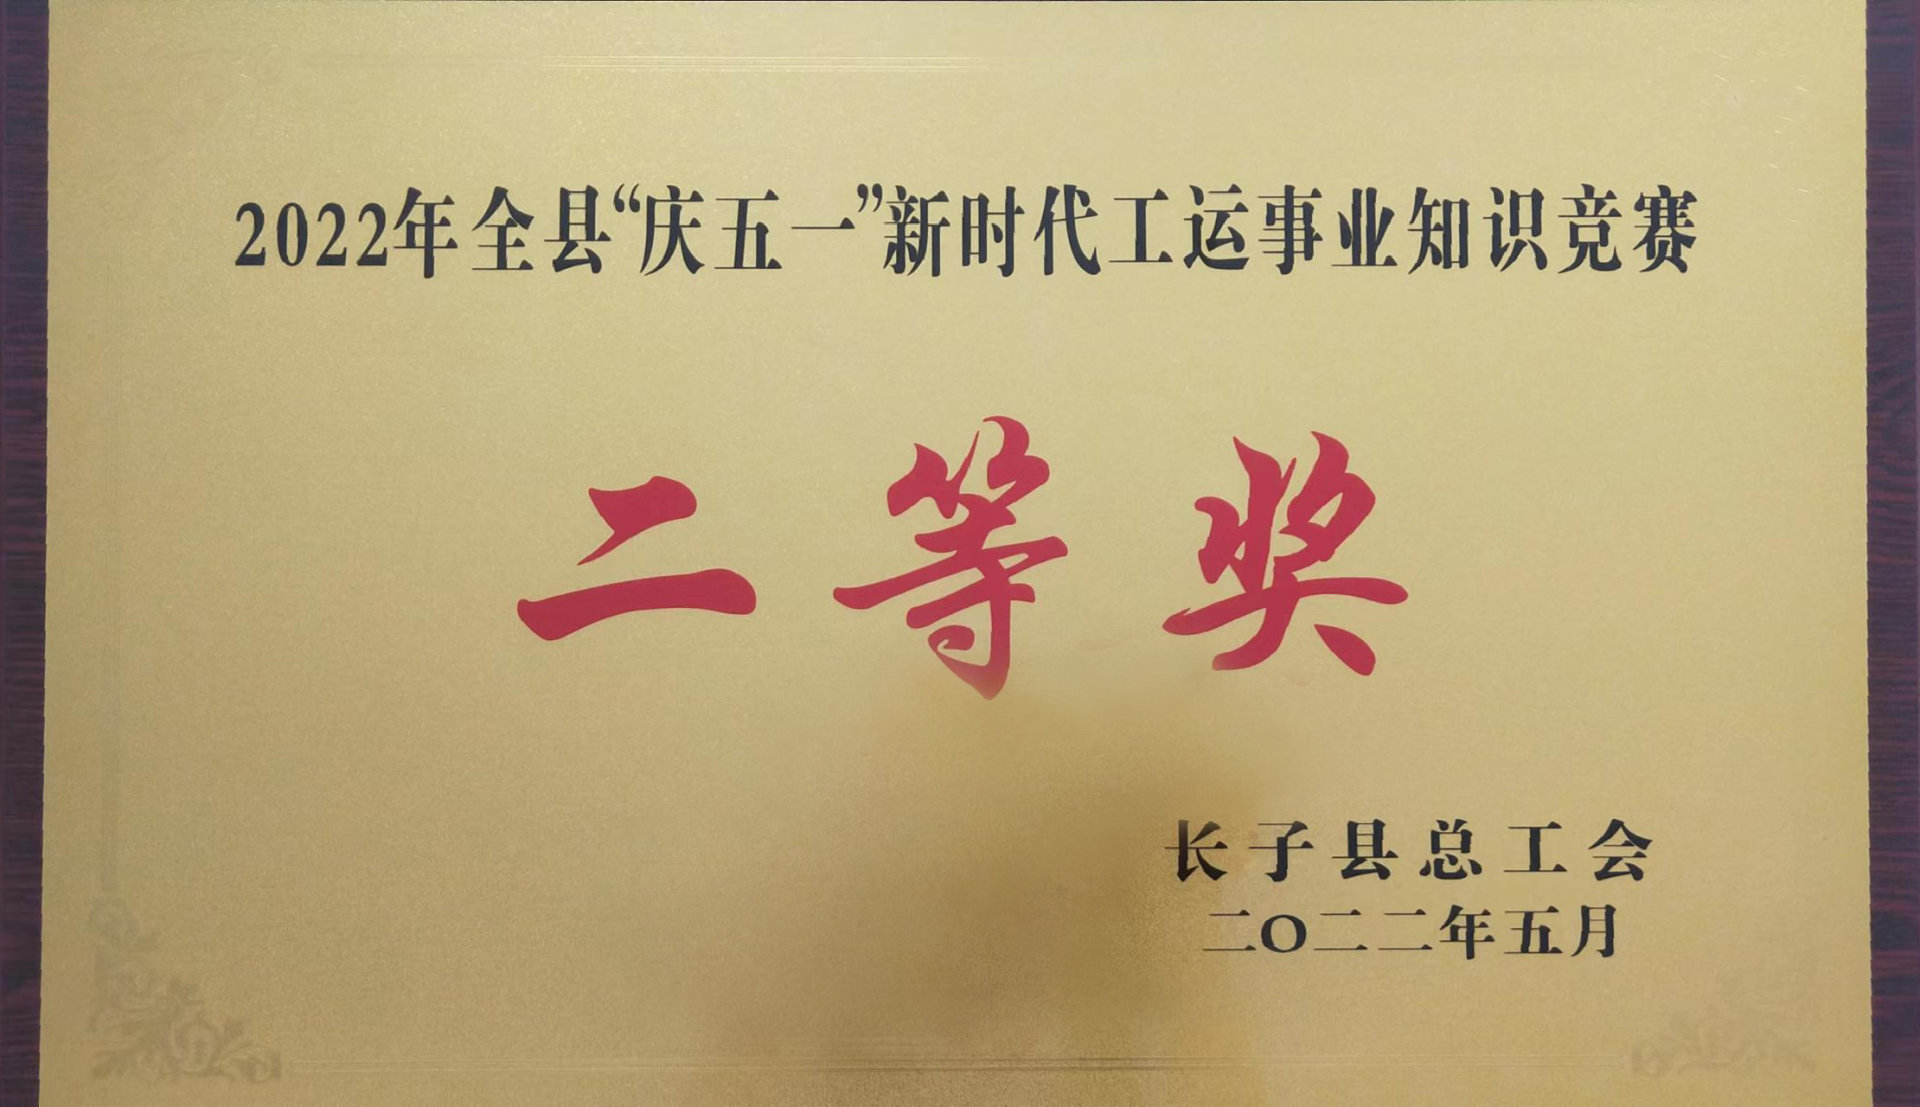 2022年全县“庆五一”新时代工运事业知识竞赛
二等奖
长子县总工会
二〇二二年五月